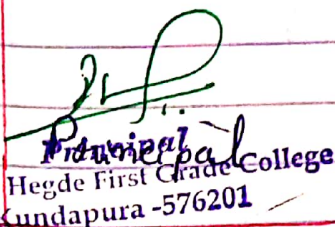 Principal
Principal
Hegde First Grade College
Kundapura -576201